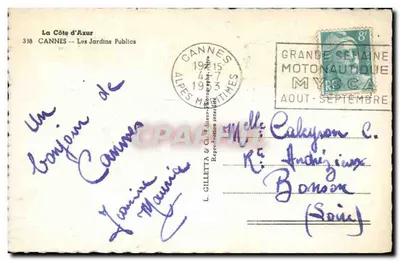 La Côte d'Azur
338 CANNES -- Les Jardins Publics
CANNES
19H15
4-7
1953
ALPES MARITIMES
8F
GRANDE SEMAINE
MOTONAUTIQUE
MYBCA
AOUT-SEPTEMBRE
Un
bonjour de
Cannes
Jeannine
Maurice
L. GILLETTA & Cie
Reproduction interdite
Melle Caleyron C.
Rte Andrézieux
Bonson
(Loire)